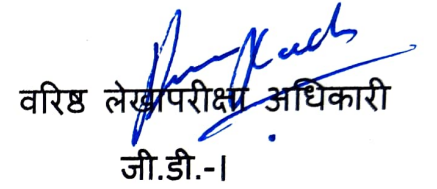 वरिष्ठ लेखापरीक्षा अधिकारी
जी.डी.-I